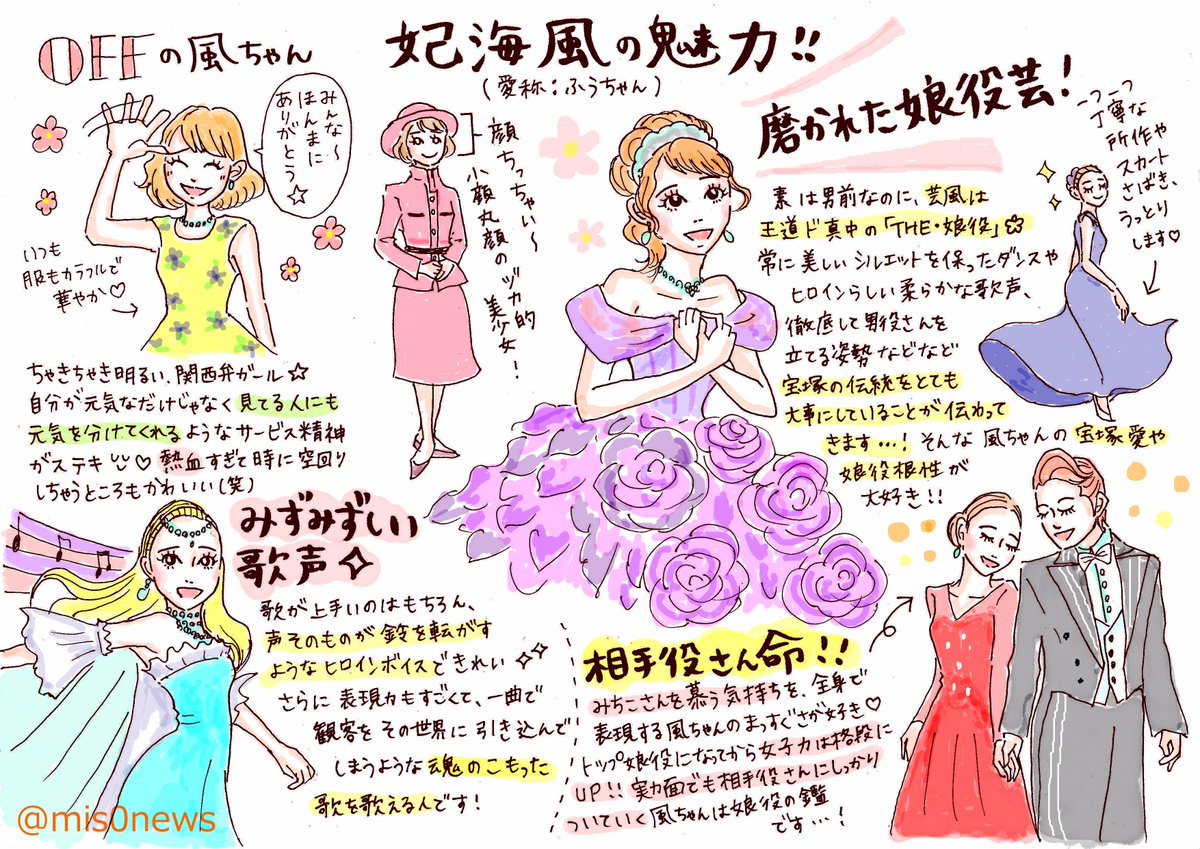 妃海風の魅力!!
(愛称:ふうちゃん)
OFFの風ちゃん
みんな〜
ほんまに
ありがとう☆
いつも
服もカラフルで
華やか♡
ちゃきちゃき明るい、関西弁ガール☆
自分が元気なだけじゃなく見てる人にも
元気を分けてくれるようなサービス精神
がステキ♡熱血すぎて時に空回り
しちゃうところもかわいい(笑)
顔ちっちゃい〜
小顔丸顔のヅカ的
美少女!
磨かれた娘役芸!
素は男前なのに、芸風は
王道ド真中の「THE・娘役」
常に美しいシルエットを保ったダンスや
ヒロインらしい柔らかな歌声、
徹底して男役さんを
立てる姿勢などなど
宝塚の伝統をとても
大事にしていることが伝わって
きます…!そんな風ちゃんの宝塚愛や
娘役根性が
大好き!!
一つ一つ
丁寧な
所作や
スカート
さばき、
うっとり
します♡
みずみずしい
歌声✧
歌が上手いのはもちろん、
声そのものが鈴を転がす
ようなヒロインボイスできれい✧✧
さらに表現力もすごくて、一曲で
観客をその世界に引き込んで
しまうような魂のこもった
歌を歌える人です!
相手役さん命!!
みちこさんを慕う気持ちを、全身で
表現する風ちゃんのまっすぐさが好き♡
トップ娘役になってから女子力は格段に
UP!!実力面でも相手役さんにしっかり
ついていく風ちゃんは娘役の鑑
です…!
@mis0news